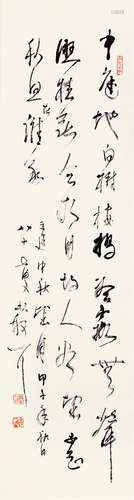 中庭地白樹棲鴉冷露無聲
濕桂花今夜月明人盡望不知
秋思在誰家
王建中秋望月甲子年秋日
八十叟